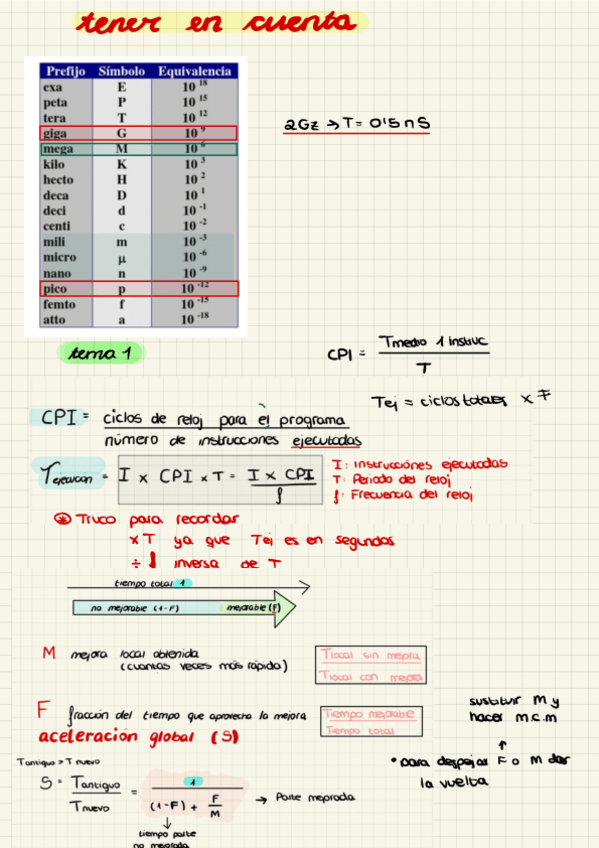 tener en cuenta
Prefijo Símbolo Equivalencia
exa E 10 18
peta P 10 15
tera T 10 12
giga G 10 9
mega M 10 6
kilo K 10 3
hecto H 10 2
deca D 10 1
deci d 10 -1
centi c 10 -2
mili m 10 -3
micro μ 10 -6
nano n 10 -9
pico p 10 -12
femto f 10 -15
atto a 10 -18
2Gz → T = 0'5 n S
tema 1
CPI = Tmedio 1 instruc
T
Tej = ciclos totales x F
CPI = ciclos de reloj para el programa
número de instrucciones ejecutadas
Tejecucion = I x CPI x T = I x CPI
f
I: Instrucciones ejecutadas
T: Periodo del reloj
f: Frecuencia del reloj
* Truco para recordar
x T ya que Tej es en segundos
÷ f inversa de T
tiempo total 1
no mejorable (1-F) mejorable (F)
M mejora local obtenida
(cuantas veces más rápida)
Tlocal sin mejora
Tlocal con mejora
F fracción del tiempo que aprovecha la mejora
Tiempo mejorable
Tiempo total
aceleración global (S)
sustituir M y
hacer m.c.m
↑
* para despejar F o M dar
la vuelta
Tantiguo > T nuevo
S = Tantiguo = 1
Tnuevo (1-F) + F
M
→ Parte mejorada
↓
tiempo parte
no mejorada